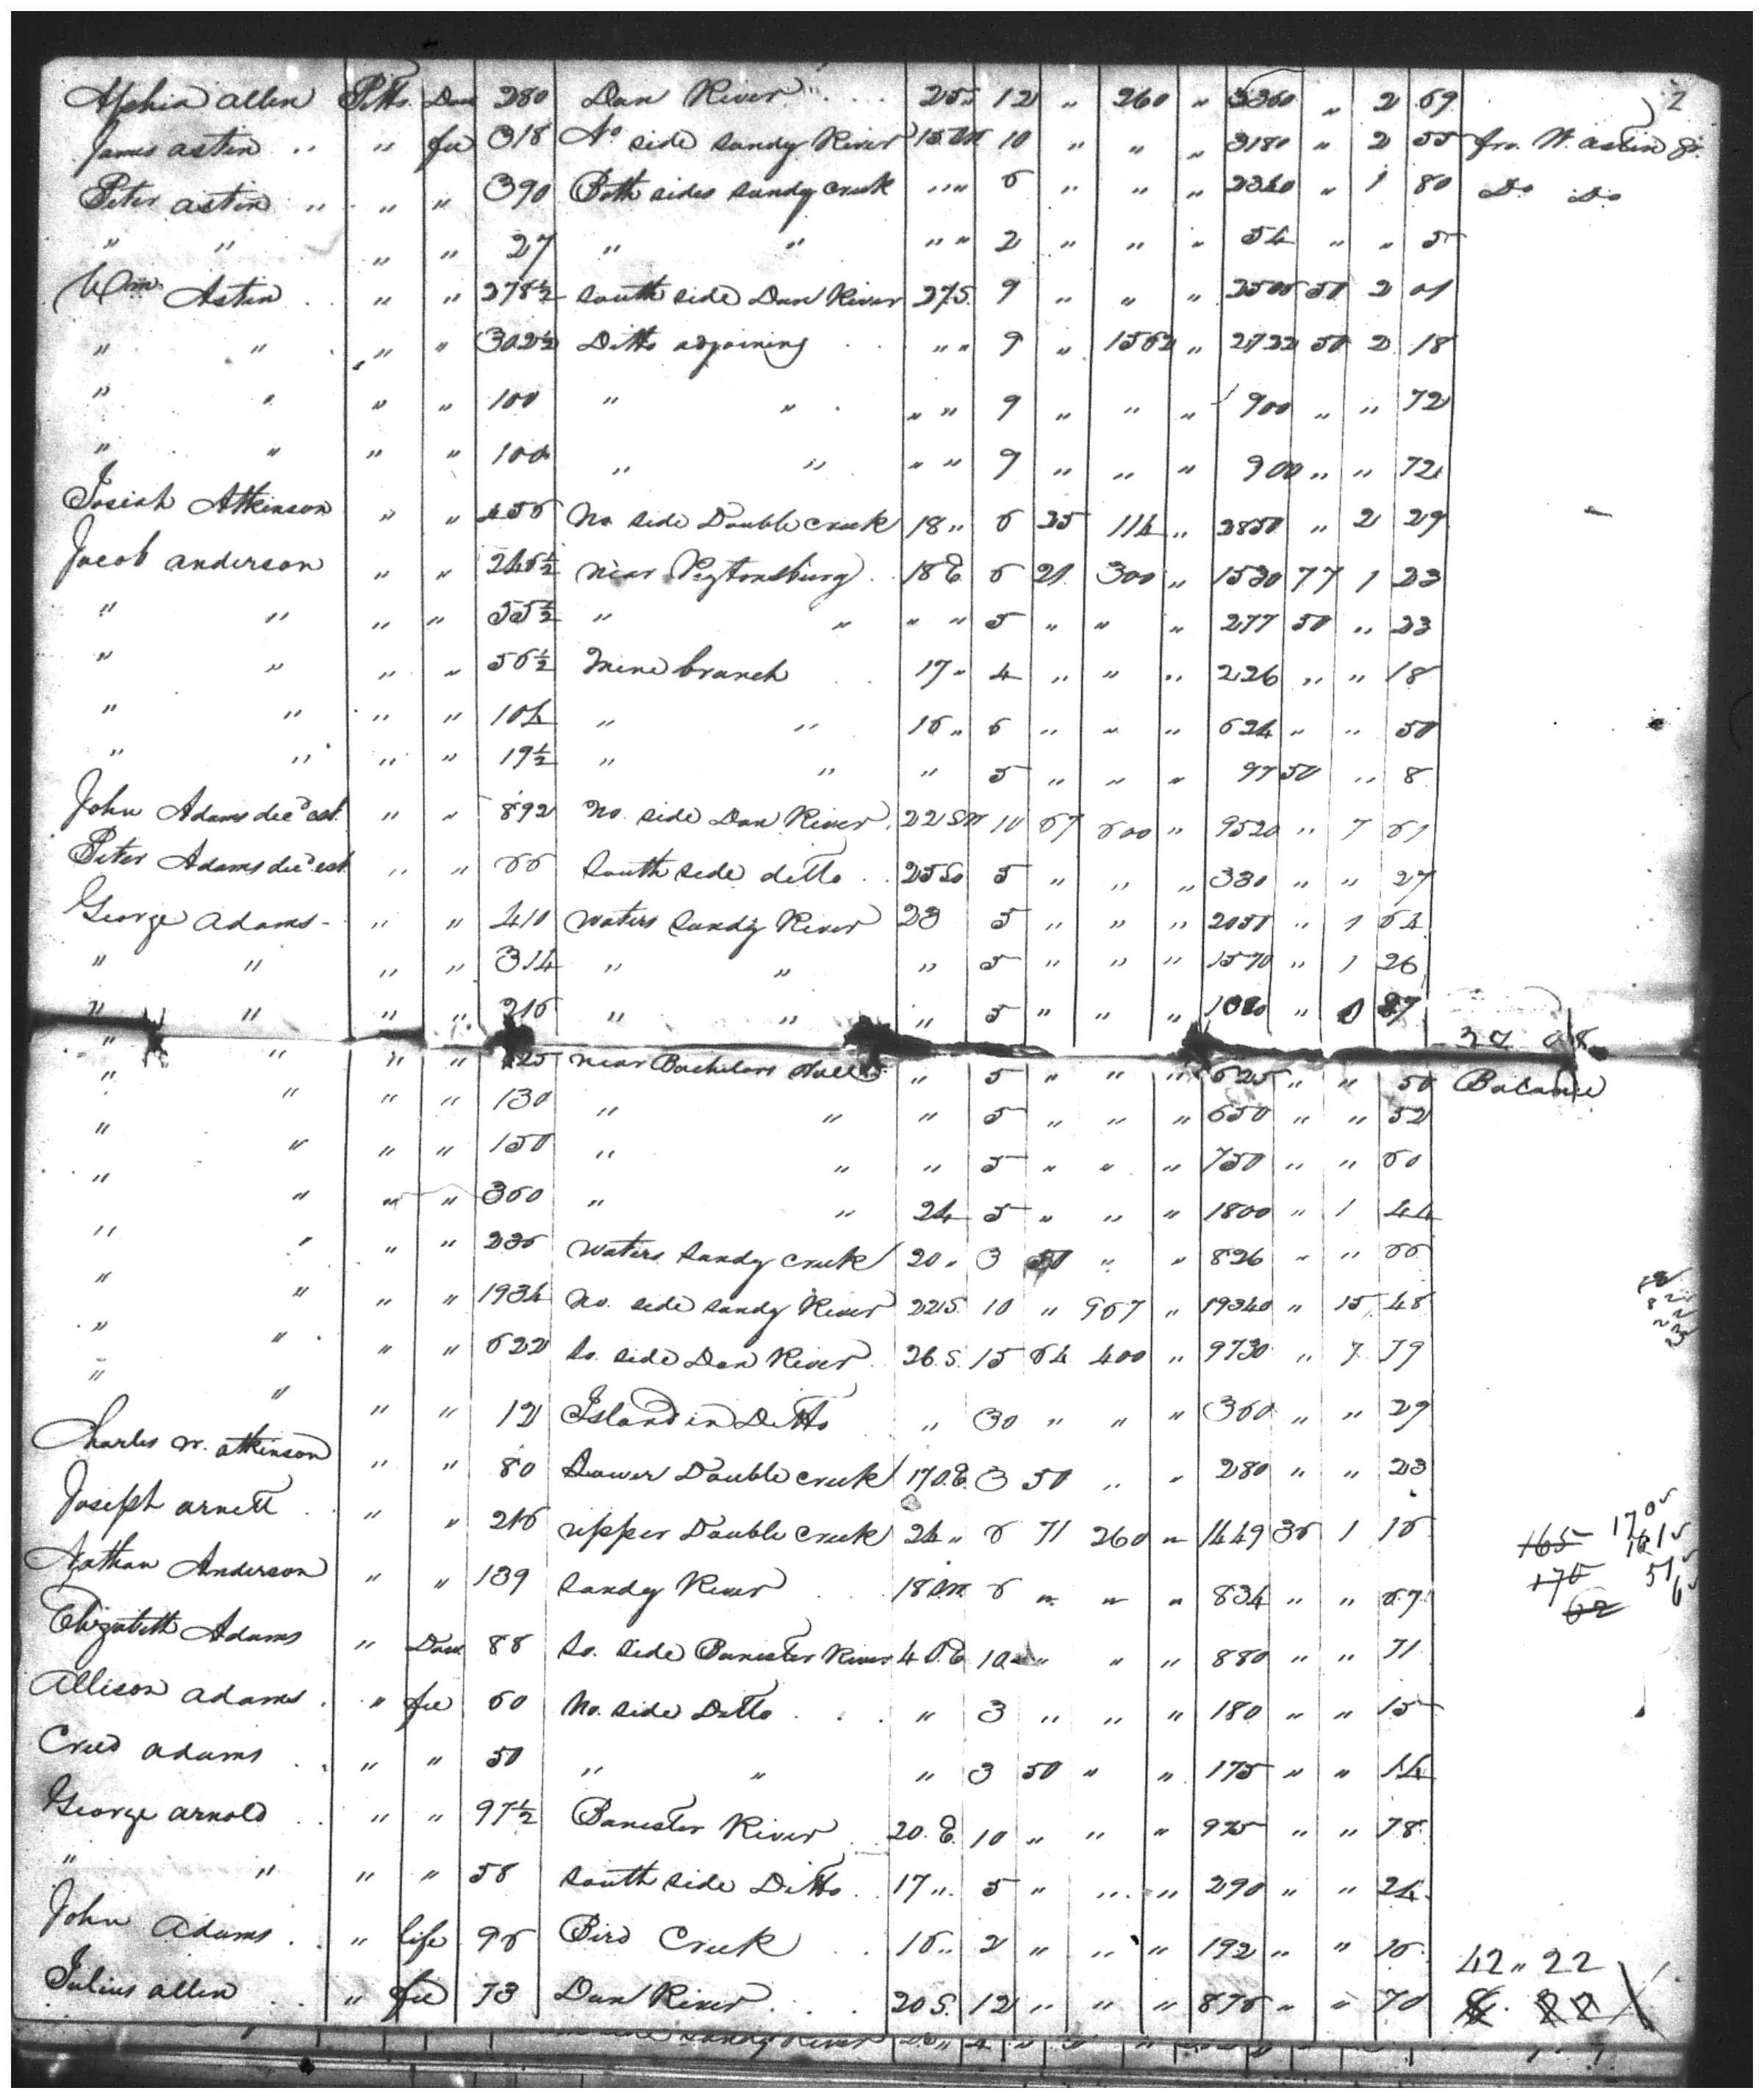 Aphia Allen Pitts. Dow 280 Dan River 25 " 12 " 260 " 3360 " 2 69 2
James Astin " " fee 318 No side Sandy River 15 SW 10 " " " 3180 " 2 55 fro. W. Astin Sr.
Peter Astin " " " 390 Both sides Sandy Creek " " 6 " " " 2340 " 1 80 Do Do
" " " " 27 " " " " 2 " " " 54 " " 5
Wm. Astin " " 278½ South side Dan River 27 S. 9 " " " 2505 50 2 01
" " " " 302½ Ditto adjoining " " 9 " 1562 " 2722 50 2 18
" " " " 100 " " " " 9 " " " 900 " " 72
" " " " 100 " " " " 9 " " " 900 " " 72
Josiah Atkinson " " 456 No side Double Creek 18 " 6 25 114 " 2850 " 2 29
Jacob Anderson " " 246½ near Peytonsburg 18 E 6 21 300 " 1530 77 1 23
" " " " 55½ " " " " 5 " " " 277 50 " 23
" " " " 56½ Mine branch 17 " 4 " " " 226 " " 18
" " " " 104 " " 16 " 6 " " " 624 " " 50
" " " " 19½ " " " 5 " " " 97 50 " 8
John Adams decd est. " " 892 No. side Dan River 22 SW 10 67 600 " 9520 " 7 61
Peter Adams decd est. " " 66 South side ditto 25 So 5 " " " 330 " " 27
George Adams " " 410 Waters Sandy River 23 5 " " " 2050 " 1 64
" " " " 314 " " " 5 " " " 1570 " 1 26
" " " " 216 " " " 5 " " " 1080 " 0 87
" " " " 125 near Bachelors Hall " 5 " " " 625 " " 50 Balance
" " " " 130 " " " 5 " " " 650 " " 52
" " " " 150 " " " 5 " " " 750 " " 60
" " " " 360 " " 24 5 " " " 1800 " 1 44
" " " " 236 Waters Sandy Creek 20 " 3 50 " " 826 " " 66
" " " " 1934 No. side Sandy River 22 S. 10 " 967 " 19340 " 15 48
" " " " 622 So. side Dan River 26 S. 15 64 400 " 9730 " 7 79
" " " " 12 Island in Ditto " 30 " " " 360 " " 29
Charles W. Atkinson " " 80 Lower Double Creek 17 O.E 3 50 " " 280 " " 23
Joseph Arnett " " 216 upper Double Creek 24 " 6 71 260 " 1449 36 1 16
Nathan Anderson " " 139 Sandy River 18 SW 6 " " " 834 " " 67
Elizabeth Adams " Dow 88 So. side Banister River 4 O.E 10 " " " 880 " " 71
Allison Adams " fee 60 No. side Ditto " 3 " " " 180 " " 15
Creed Adams " " 50 " " " 3 50 " " 175 " " 14
George Arnold " " 97½ Banister River 20. E. 10 " " " 975 " " 78
" " " " 58 South side Ditto 17 " 5 " " " 290 " " 24
John Adams " life 96 Bird Creek 16 " 2 " " " 192 " " 16 42 " 22
Julius Allen " fee 73 Dan River 20 S. 12 " " " 876 " " 70